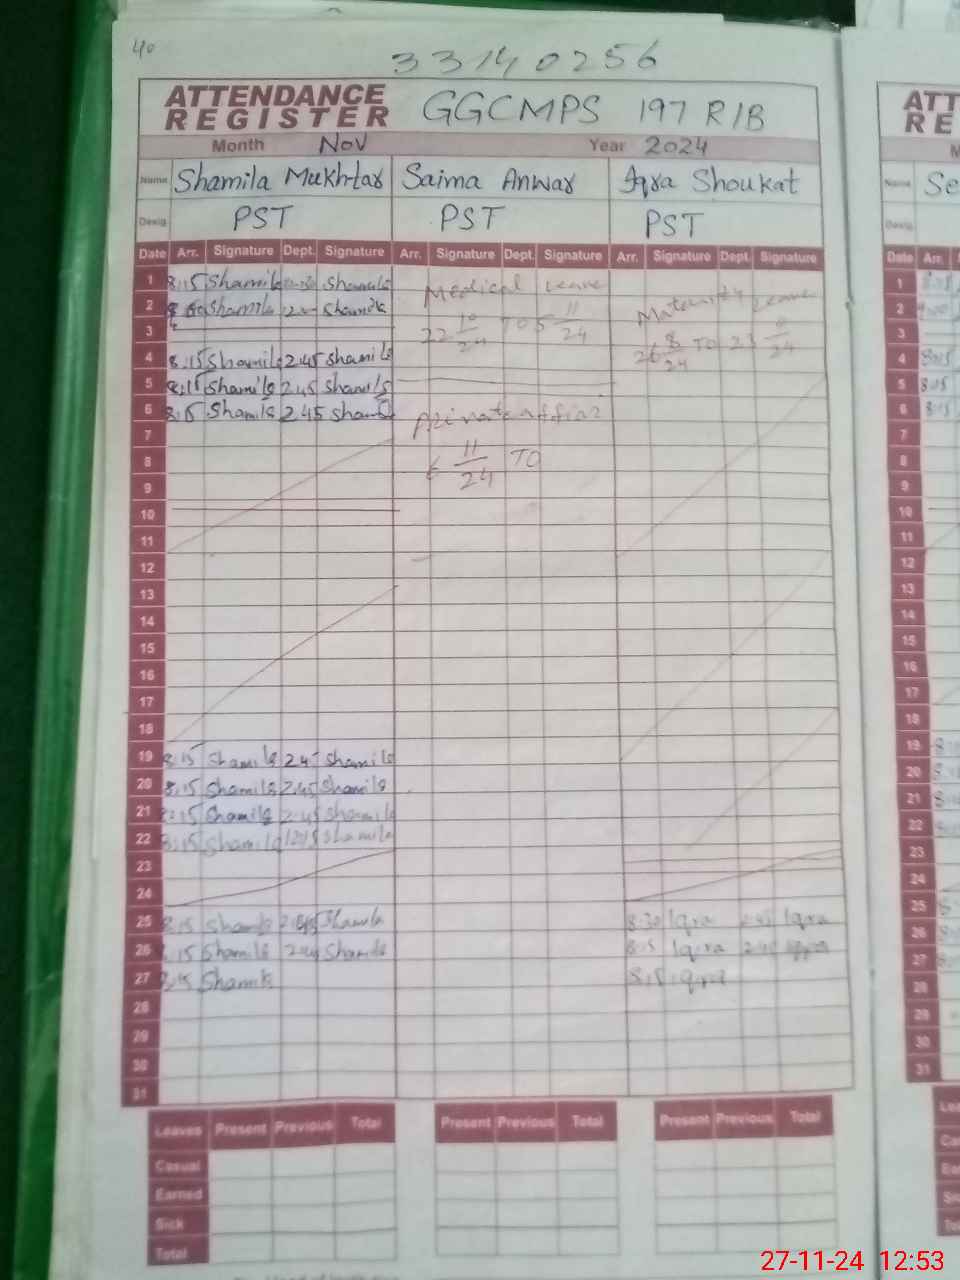 40
33140256
ATTENDANCE
REGISTER GGCMPS 197 R/B
Month Nov Year 2024
Name Shamila Mukhtar Saima Anwar Iqra Shoukat
Desig. PST PST PST
Date Arr. Signature Dept. Signature Arr. Signature Dept. Signature Arr. Signature Dept. Signature
1 8:15 Shamila Shamila Medical Leave
2 Shamila Shamila Maternity Leave
3 22 10/24 TO 5 11/24
4 8:15 Shamila 2:45 Shamila 26 8/24 TO 23
5 8:15 Shamila 2:45 Shamila
6 8:15 Shamila 2:45 Shamila Private
7
8 6 11/24 TO
9
10
11
12
13
14
15
16
17
18
19 8:15 Shamila 2:45 Shamila
20 8:15 Shamila 2:45 Shamila
21 8:15 Shamila 2:45 Shamila
22 8:15 Shamila Shamila
23
24
25 8:15 Shamila Shamila 8:30 Iqra Iqra
26 8:15 Shamila Shamila 8:15 Iqra Iqra
27 8:15 Shamila 8:15 Iqra
28
29
30
31
Leaves Present Previous Total Present Previous Total Present Previous Total
Casual
Earned
Sick
Total
ATT
RE
Name Se
Desig.
Date Arr.
1
2
3
4 8:15
5 8:15
6 8:15
7
8
9
10
11
12
13
14
15
16
17
18
19
20
21
22
23
24
25
26
27
28
29
30
31
27-11-24 12:53